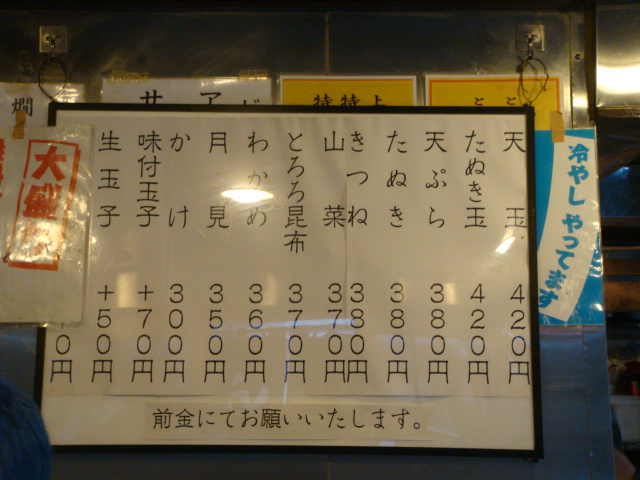 天玉 420円
たぬき玉 420円
天ぷら 380円
たぬき 380円
きつね 380円
山菜 370円
とろろ昆布 370円
わかめ 360円
月見 350円
かけ 300円
味付玉子 +70円
生玉子 +50円
0円
前金にてお願いいたします。
冷やし やってます
大盛
特特上
燗